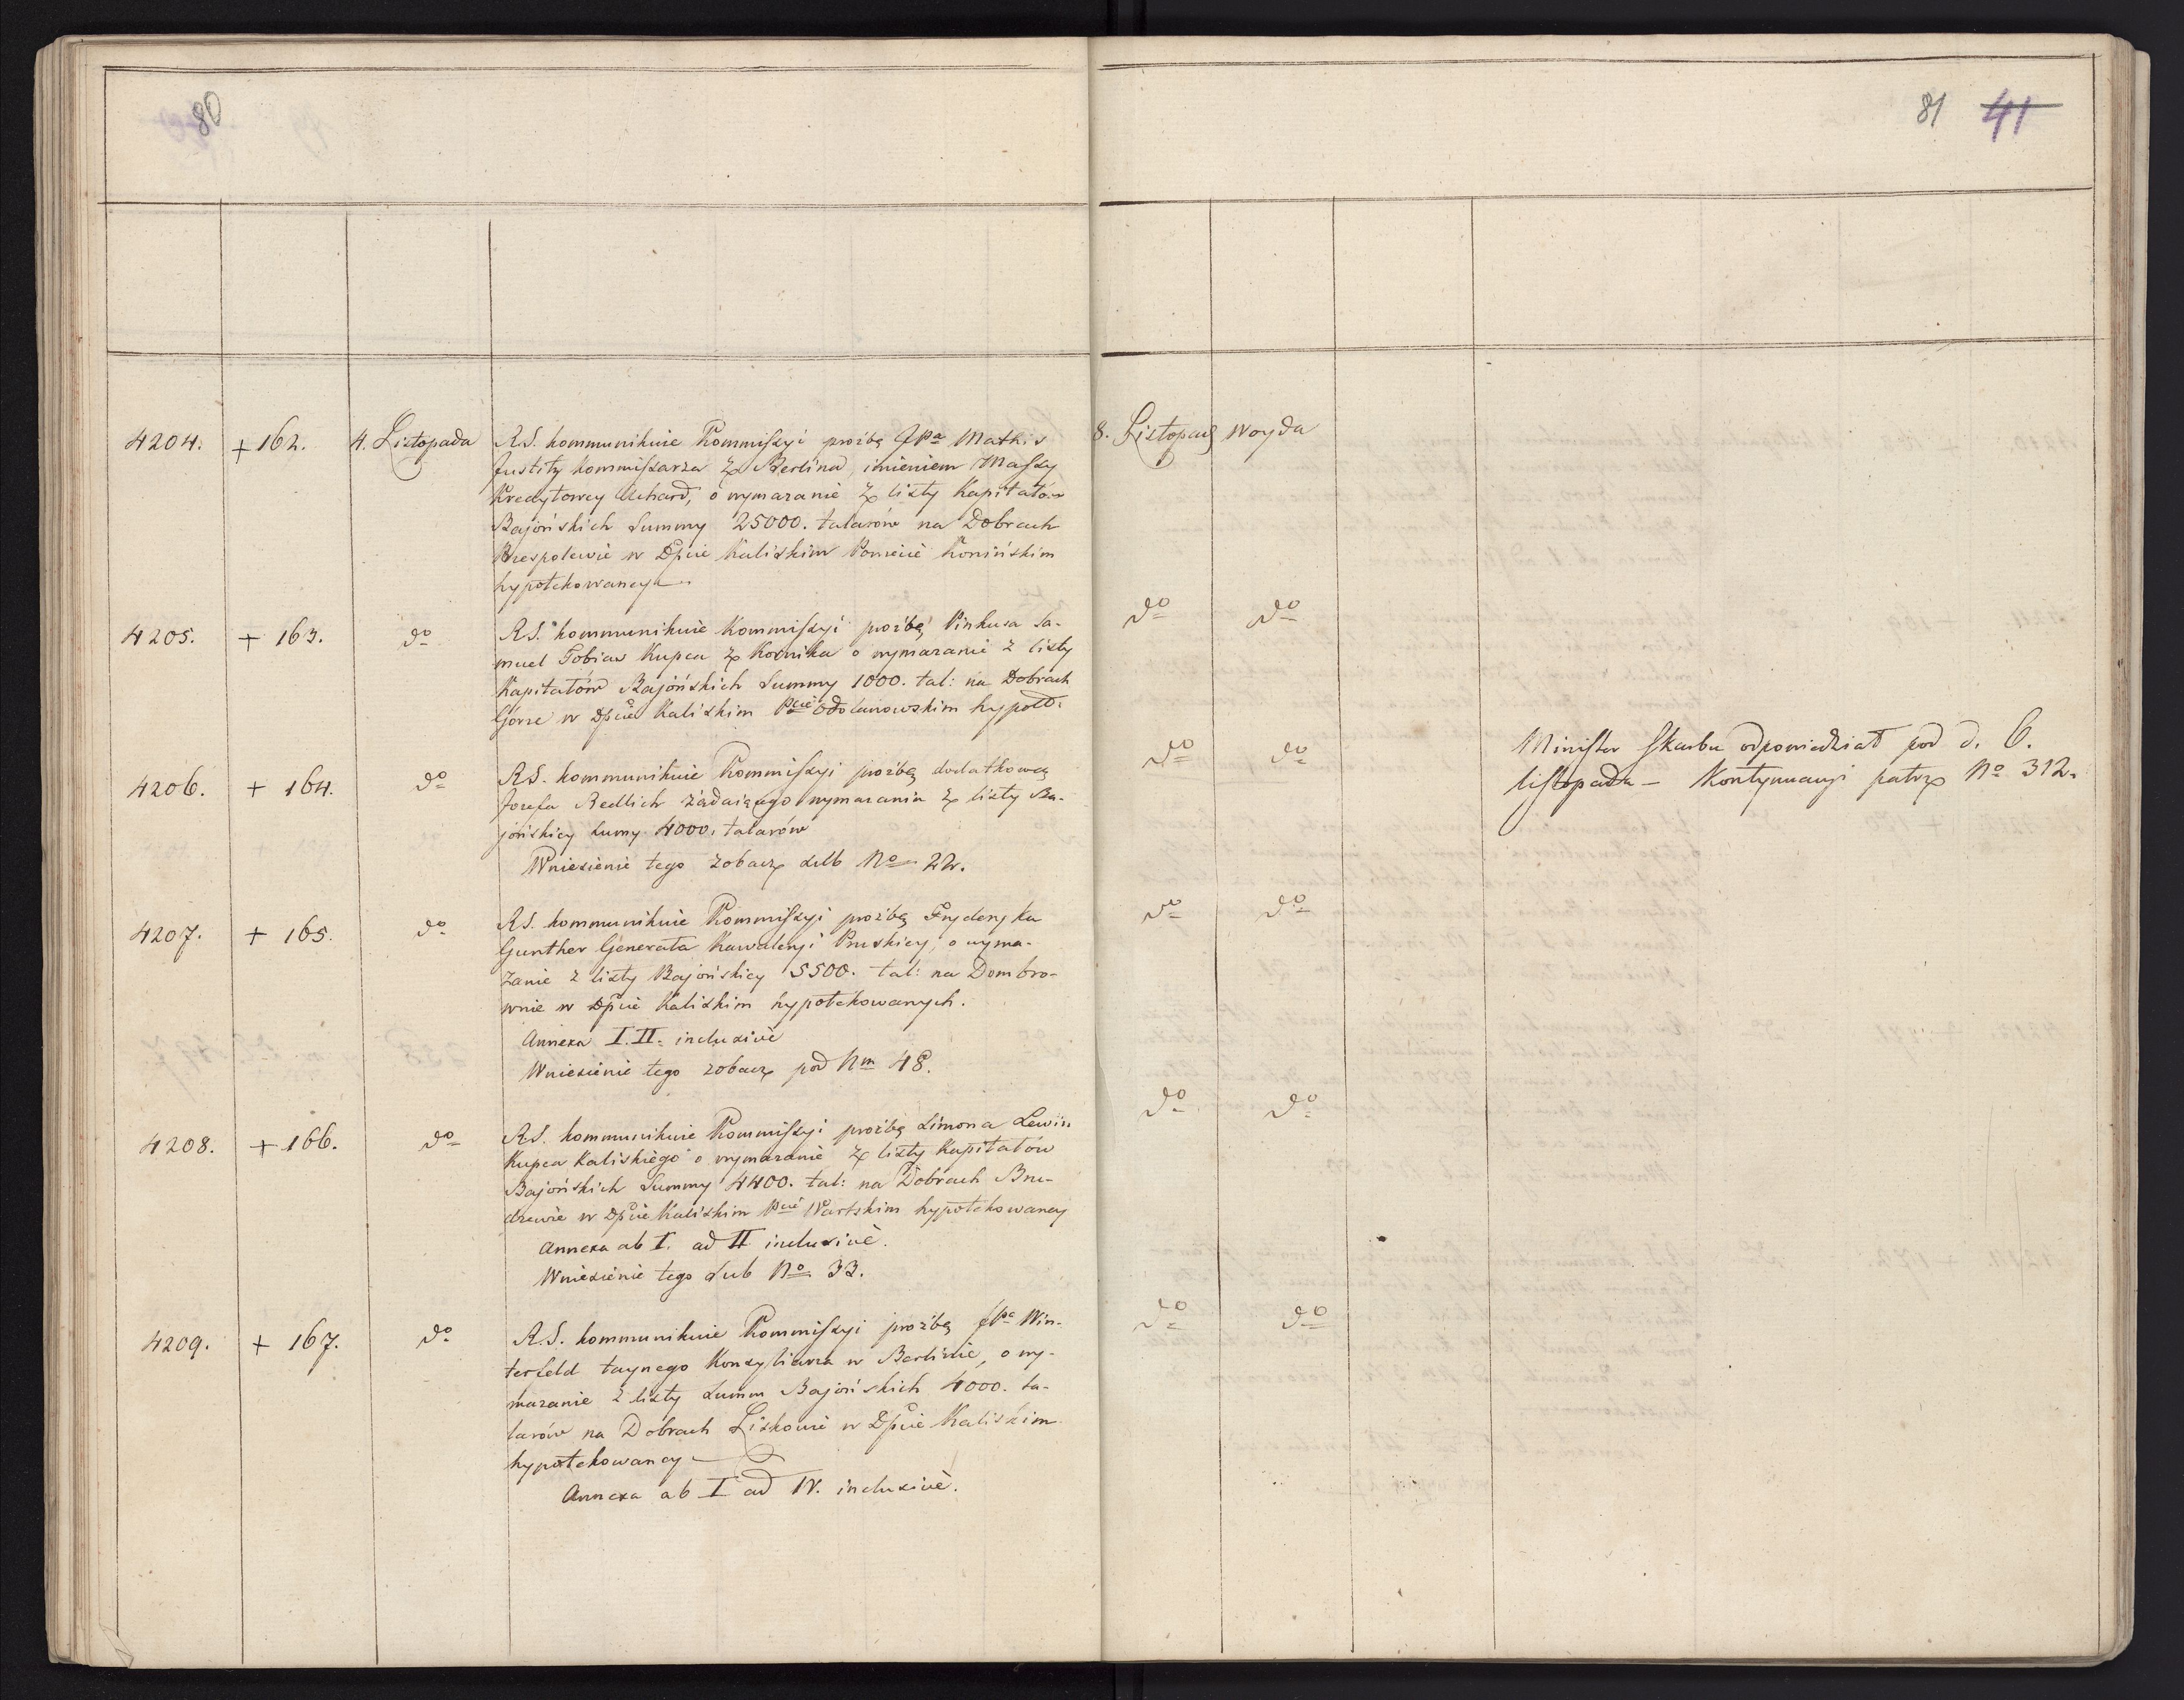 80
4204. + 162. 4. Listopada R.S. kommunikuie Kommissyi proźbę JPa Matkis
Justitz Kommissarza z Berlina, imieniem Massy
Kredytowey Achard, o wymazanie z listy Kapitałów
Bajońskich Summy 25000. talarów na Dobrach
w Dpcie Kaliskim Powiecie Konińskim
hypotekowaney
4205. + 163. do R.S. kommunikuie Kommissyi proźbę Pinkusa Sa-
muel Tobias Kupca z Koźmika o wymazanie z listy
Kapitałów Bajońskich Summy 1000. tal: na Dobrach
Górze w Dpcie Kaliskim Pcie Odolanowskim hypot.
4206. + 164. do R.S. kommunikuie Kommissyi proźbę dodatkową
Jozefa Redlich żądaiącego wymazania z listy Ba-
jońskiey sumy 4000. talarów
Wniesienie tego zobacz sub No 22.
4207. + 165. do R.S. kommunikuie Kommissyi proźbę Fryderyka
Gunther Generała Kawaleryi Pruskiey, o wyma-
zanie z listy Bajońskiey 5500. tal: na Dombro-
wnie w Dpcie Kaliskim hypotekowanych.
Annexa I. II. inclusive
Wniesienie tego zobacz pod Nm 48.
4208. + 166. do R.S. kommunikuie Kommissyi proźbę Simona Lewin
Kupca Kaliskiego o wymazanie z listy Kapitałów
Bajońskich Summy 4400. tal: na Dobrach Bru-
drewie w Dpcie Kaliskim Pcie Wartskim hypotekowaney
Annexa ab I. ad II inclusive.
Wniesienie tego sub No 33.
4209. + 167. do R.S. kommunikuie Kommissyi proźbę JPa Win-
terfeld taynego Konsyliarza w Berlinie, o wy-
mazanie z listy summ Bajońskich 4000. ta-
larów na Dobrach Liskowie w Dpcie Kaliskim
hypotekowaney
Annexa ab I ad IV. inclusive.
81 41
8. Listopad Woyda
do do
do do Minister Skarbu odpowiedział pod d. 6.
listopada – Kontynuacyi patrz No 312.
do do
do do
do do